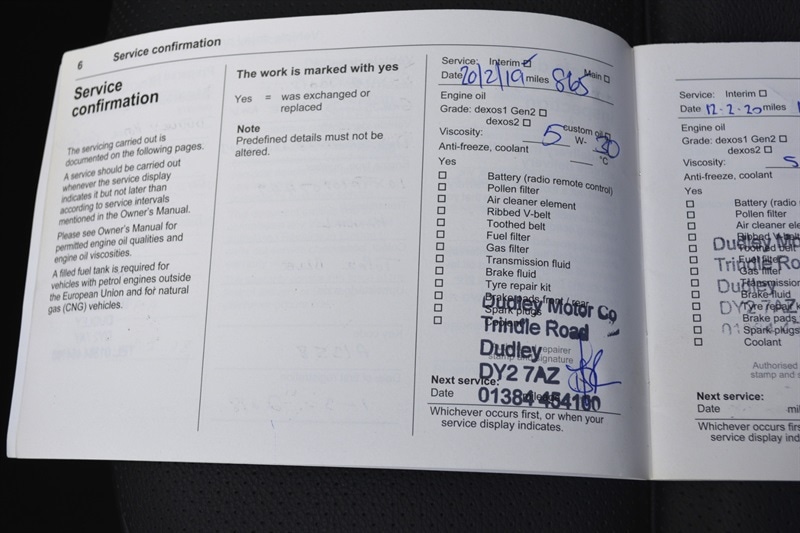 6 Service confirmation
Service
confirmation
The servicing carried out is
documented on the following pages.
A service should be carried out
whenever the service display
indicates it but not later than
according to service intervals
mentioned in the Owner's Manual.
Please see Owner's Manual for
permitted engine oil qualities and
engine oil viscosities.
A filled fuel tank is required for
vehicles with petrol engines outside
the European Union and for natural
gas (CNG) vehicles.
The work is marked with yes
Yes = was exchanged or
replaced
Note
Predefined details must not be
altered.
Service: Interim ☑ Main ☐
Date 20/2/19 miles 865
Engine oil
Grade: dexos1 Gen2 ☐
dexos2 ☐ custom oil ☐
Viscosity: 5 W- 30
Anti-freeze, coolant °C
Yes
☐ Battery (radio remote control)
☐ Pollen filter
☐ Air cleaner element
☐ Ribbed V-belt
☐ Toothed belt
☐ Fuel filter
☐ Gas filter
☐ Transmission fluid
☐ Brake fluid
☐ Tyre repair kit
☐ Brake pads front / rear
☐ Spark plugs
☐
Dudley Motor Co
Trindle Road
Dudley
DY2 7AZ
01384 454100
repairer
stamp and signature
Next service:
Date mileage
Whichever occurs first, or when your
service display indicates.
Service: Interim ☐
Date 12-2-20 miles
Engine oil
Grade: dexos1 Gen2 ☐
dexos2 ☐
Viscosity: 5
Anti-freeze, coolant
Yes
☐ Battery (radio
☐ Pollen filter
☐ Air cleaner ele
☐ Ribbed V-belt
☐ Toothed belt
☐ Fuel filter
☐ Gas filter
☐ Transmission
☐ Brake fluid
☐ Tyre repair k
☐ Brake pads
☐ Spark plugs
☐ Coolant
Dudley Mo
Trindle Ro
Dudley
DY2 7AZ
Authorised
stamp and s
Next service:
Date mil
Whichever occurs firs
service display ind